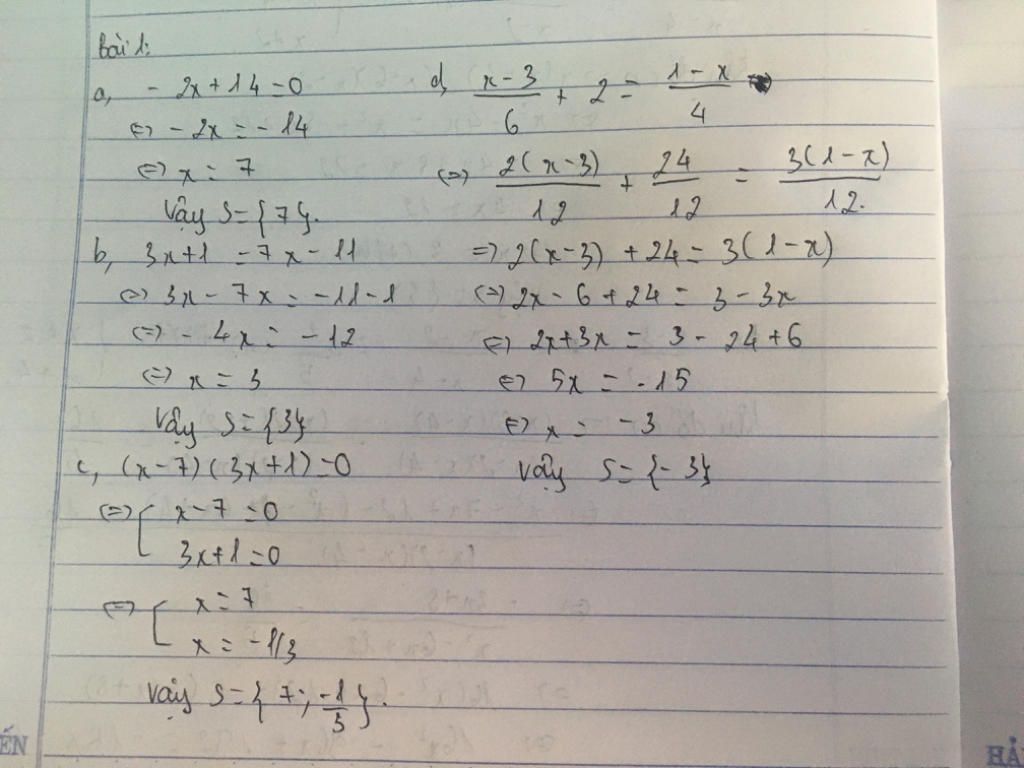 Bài 1:
a, - 2x + 14 = 0
⇔ - 2x = - 14
⇔ x = 7
Vậy S = {7}.
b, 3x+1 = 7x - 11
⇔ 3x - 7x = -11 - 1
⇔ - 4x = - 12
⇔ x = 3
Vậy S = {3}
c, (x-7)(3x+1) = 0
⇔ [ x - 7 = 0
3x+1 = 0
⇔ [ x = 7
x = -1/3
Vậy S = { 7 ; -1/3 }.
d, (x-3)/6 + 2 = (1-x)/4
⇔ 2(x-3)/12 + 24/12 = 3(1-x)/12.
⇒ 2(x-3) + 24 = 3(1-x)
⇔ 2x - 6 + 24 = 3 - 3x
⇔ 2x+3x = 3 - 24 + 6
⇔ 5x = -15
⇔ x = -3
Vậy S = {-3}
ẾN
HẢ